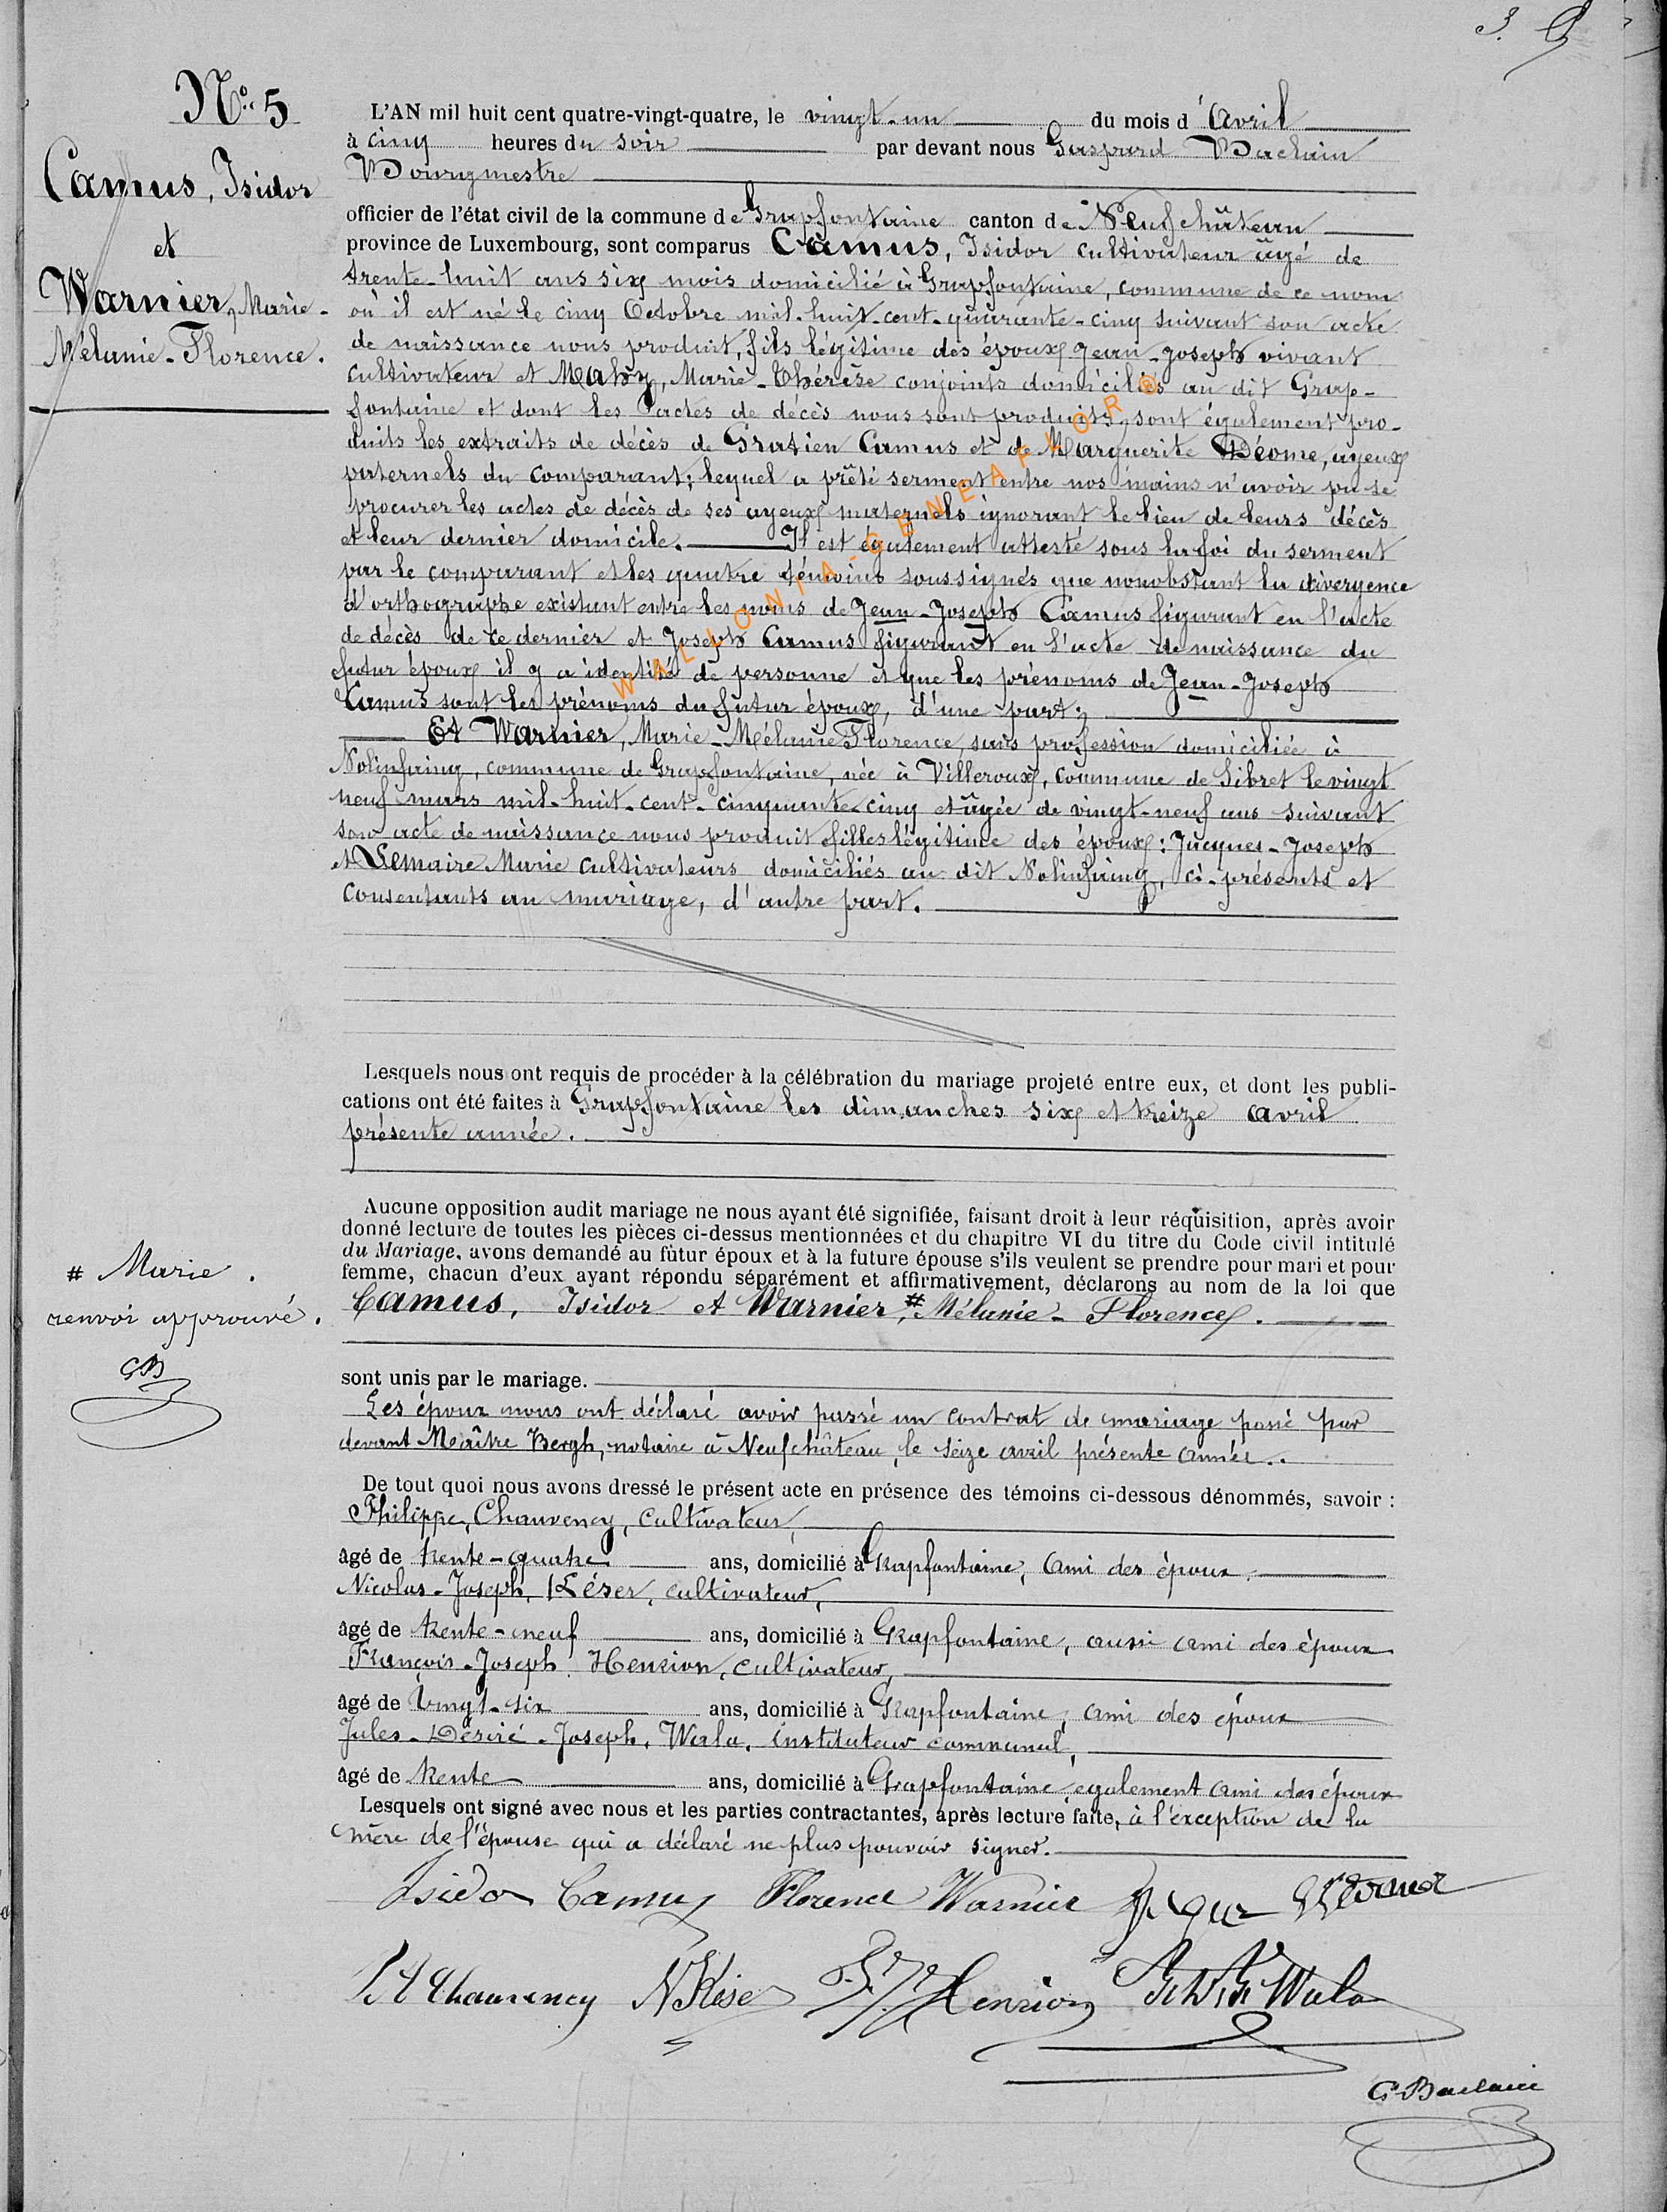 No. 5
Camus, Isidor
et
Warnier, Marie-
Mélanie-Florence.
L'AN mil huit cent quatre-vingt-quatre, le vingt-un du mois d'Avril
à cinq heures du soir par devant nous Gaspard Baclain
Bourgmestre
officier de l'état civil de la commune de Grapfontaine canton de Neufchâteau
province de Luxembourg, sont comparus Camus, Isidor cultivateur âgé de
trente-huit ans six mois domicilié à Grapfontaine, commune de ce nom
où il est né le cinq Octobre mil-huit-cent-quarante-cinq suivant son acte
de naissance nous produit, fils légitime des époux Jean-Joseph vivant
cultivateur et Mahy, Marie-Thérèse conjoints domiciliés au dit Grap-
fontaine et dont les actes de décès nous sont produits, sont également pro-
duits les extraits de décès de Gratien Camus et de Marguerite Déome, ayeux
paternels du comparant; lequel a prêté serment entre nos mains n'avoir pu se
procurer les actes de décès de ses ayeux maternels ignorant le lieu de leurs décès
et leur dernier domicile. Il est également attesté sous la foi du serment
par le comparant et les quatre témoins soussignés que nonobstant la divergence
d'orthographe existant entre les noms de Jean-Joseph Camus figurant en l'acte
de décès de ce dernier et Joseph Camus figurant en l'acte de naissance du
futur époux il y a identité de personne et que les prénoms de Jean-Joseph
Camus sont les prénoms du futur époux, d'une part;
Et Warnier, Marie-Mélanie Florence, sans profession domiciliée à
Nolinfaing, commune de Grapfontaine, née à Villeroux, commune de Sibret le vingt
neuf mars mil-huit-cent-cinquante-cinq et âgée de vingt-neuf ans suivant
son acte de naissance nous produit filles légitime des époux: Jacques-Joseph
et Lemaire Marie cultivateurs domiciliés au dit Nolinfaing, ci-présents et
consentants au mariage, d'autre part.
WALLONIA-GENEAFLOR®
Lesquels nous ont requis de procéder à la célébration du mariage projeté entre eux, et dont les publi-
cations ont été faites à Grapfontaine les dimanches six et treize avril
présente année.
Aucune opposition audit mariage ne nous ayant été signifiée, faisant droit à leur réquisition, après avoir
donné lecture de toutes les pièces ci-dessus mentionnées et du chapitre VI du titre du Code civil intitulé
du Mariage, avons demandé au futur époux et à la future épouse s'ils veulent se prendre pour mari et pour
femme, chacun d'eux ayant répondu séparément et affirmativement, déclarons au nom de la loi que
Camus, Isidor et Warnier, # Mélanie-Florence.
# Marie.
renvoi approuvé.
GB
sont unis par le mariage.
Les époux nous ont déclaré avoir passé un contrat de mariage passé par
devant Maître Bergh, notaire à Neufchâteau, le seize avril présente année.
De tout quoi nous avons dressé le présent acte en présence des témoins ci-dessous dénommés, savoir :
Philippe, Chauvency, cultivateur,
âgé de trente-quatre ans, domicilié à Grapfontaine, ami des époux.
Nicolas-Joseph, Késer, cultivateur,
âgé de trente-neuf ans, domicilié à Grapfontaine, aussi ami des époux
François-Joseph Henrion, cultivateur,
âgé de vingt-six ans, domicilié à Grapfontaine, ami des époux
Jules-Désiré-Joseph, Wala, instituteur communal,
âgé de trente ans, domicilié à Grapfontaine également ami des époux
Lesquels ont signé avec nous et les parties contractantes, après lecture faite, à l'exception de la
mère de l'épouse qui a déclaré ne plus pouvoir signer.
Isidor Camus Florence Warnier
Chauvency Henrion Wala
G. Baclain